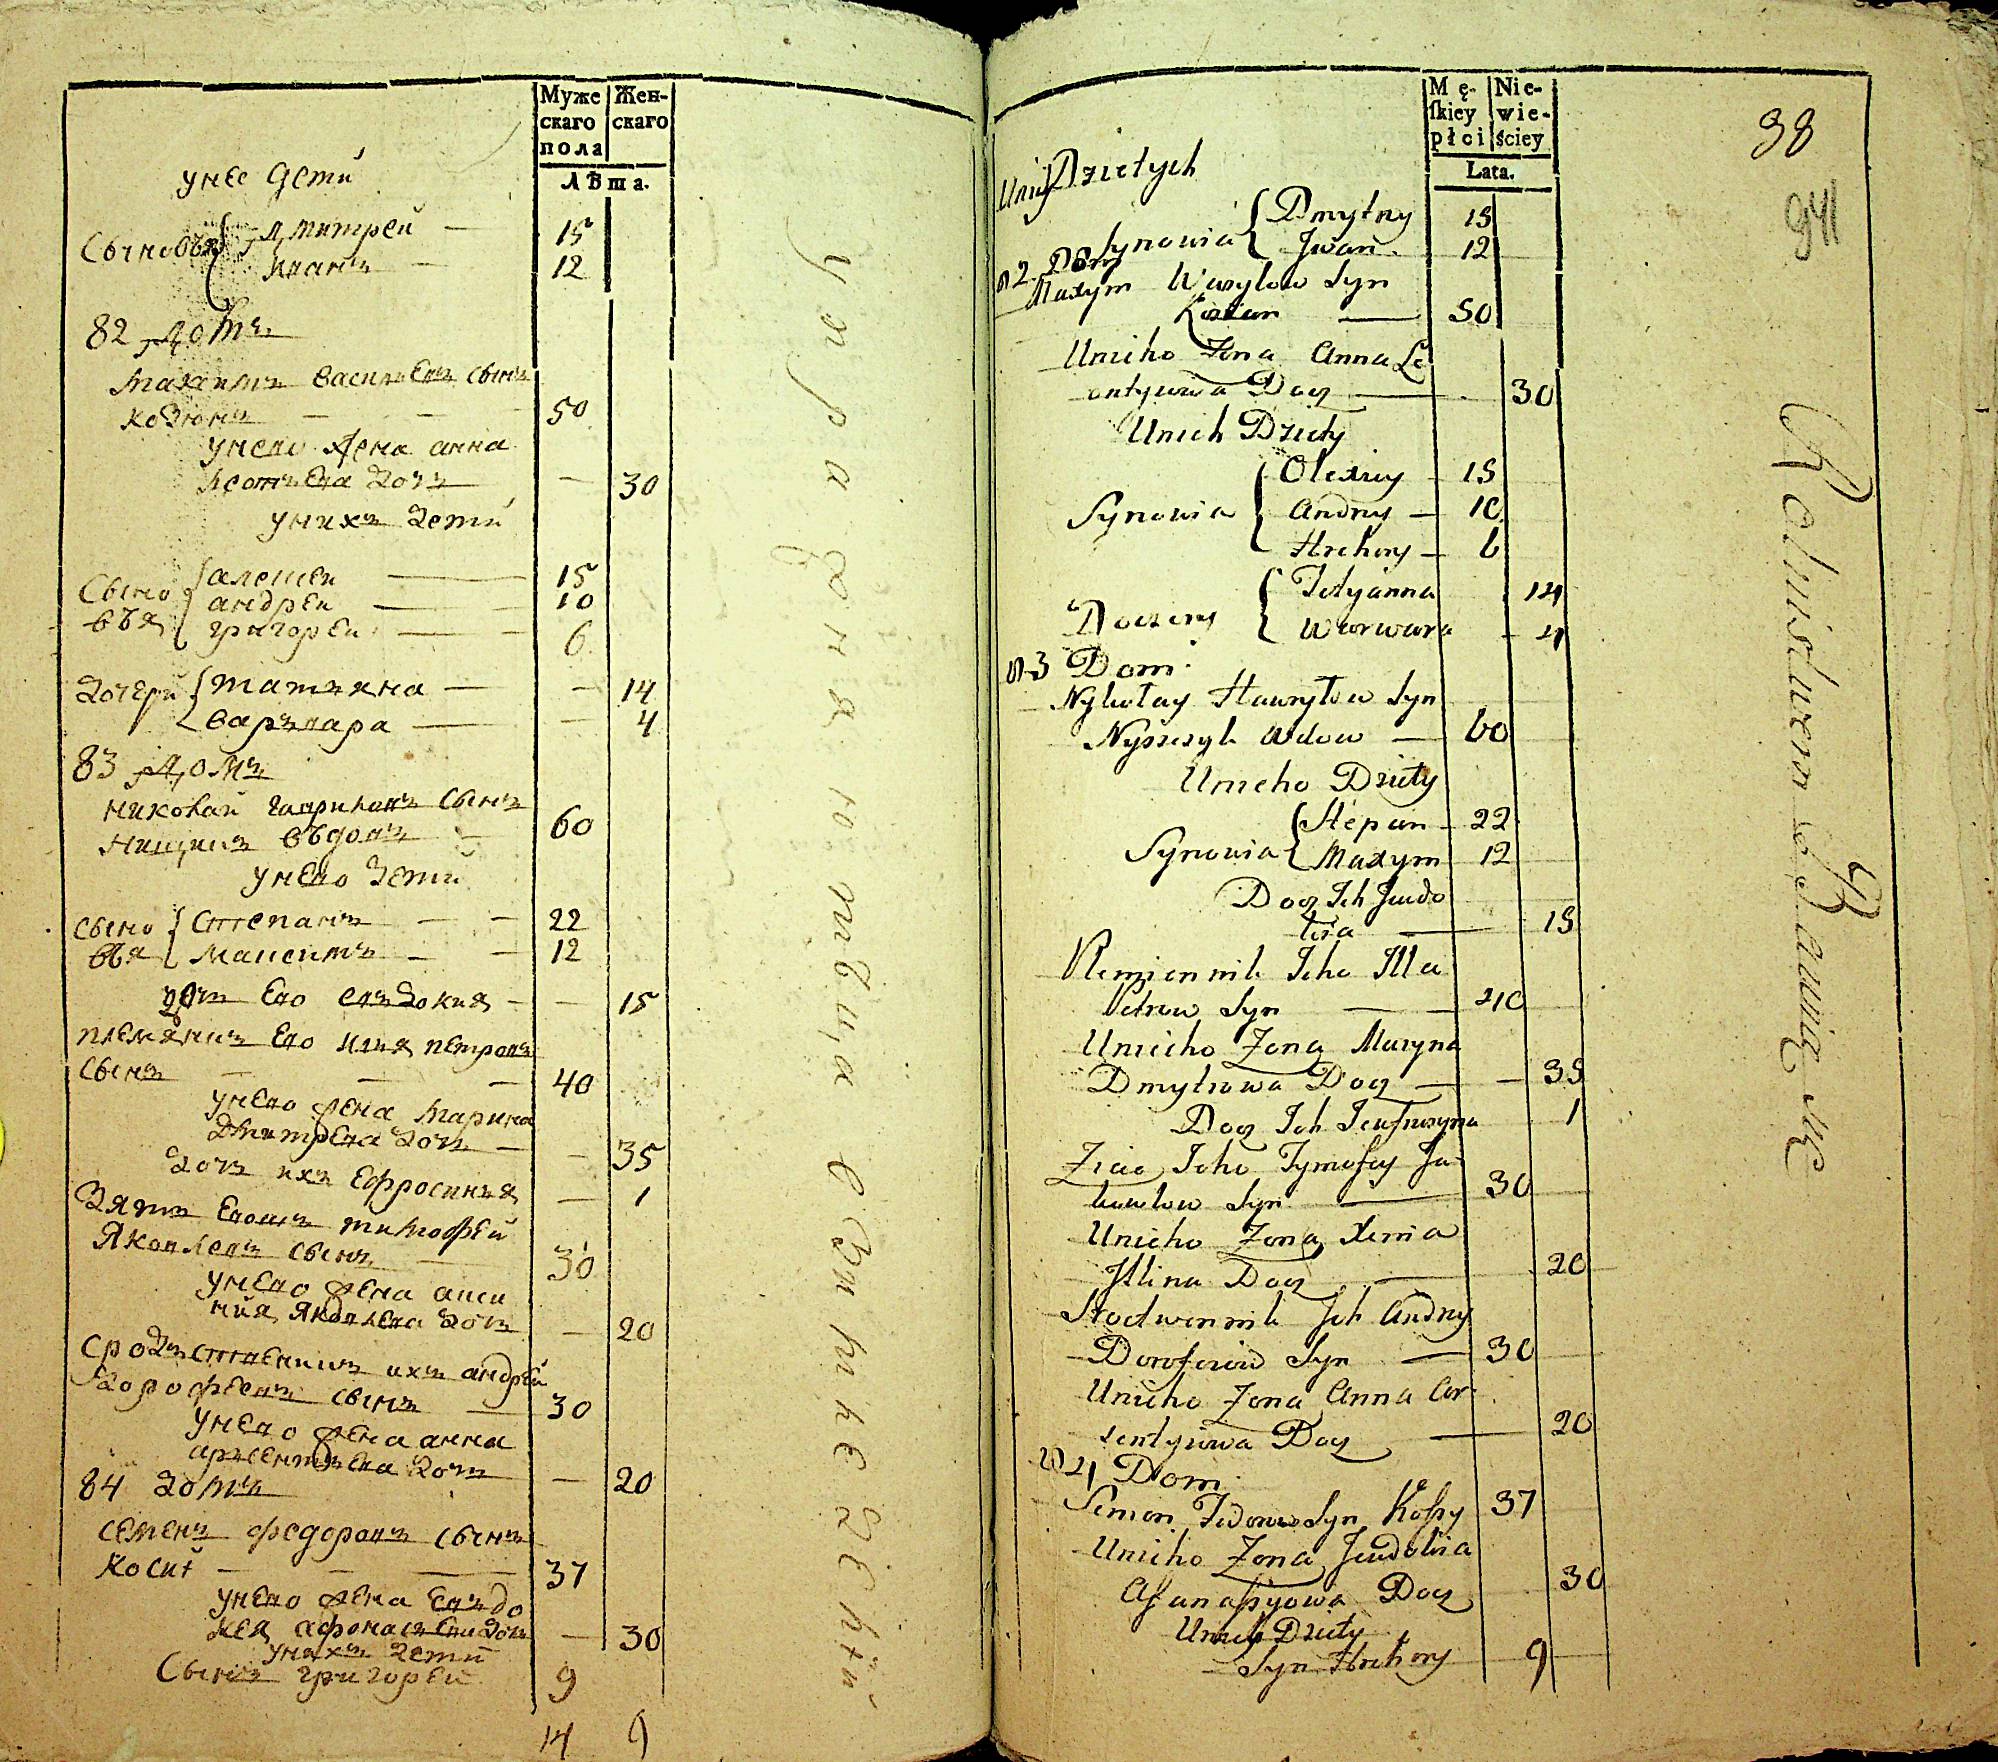 Муже
скаго
пола
Жен-
скаго
Лѣта.
унее дети
Сыновъя Дмитрей — 15
Иванъ — 12
82 Домъ
Махимъ Василъевъ сынъ
козюнъ — — — 50
унево жена анна
леонтъева дочъ — 30
унихъ дети
Сыно
въя
алешей — 15
андрей — 10
григорей — 6
дочери татъяна — 14
варъвара — 4
83 Домъ
николай гавриловъ сынъ
нищикъ въдовъ — 60
унево дети
сыно
въя
степанъ — 22
максимъ — 12
дочъ ево евъдокия — 15
племяникъ ево илия петровъ
сынъ — — — 40
унево жена марина
дмитрева дочъ — 35
дочъ ихъ ефросинъя — 1
Зятъ евошъ тимофей
яковлевъ сынъ — 30
унево жена акси
ния яковлева дочъ — 20
сродъственикъ ихъ андрей
дорофеевъ сынъ — 30
унево жена анна
арсентъева дочъ — 20
84 домъ
семенъ федоровъ сынъ
косий — — — 37
унево жена евъдо
кея афонасъева дочъ — 30
унихъ дети
Сынъ григорей 9
14 9
Mę-
ſkiey
płci
Nie-
wie-
ściey
Lata.
38
Uniy Dzietych
Synowia Dmytry 15
Jwan 12
82 Dom
Maxym Wasylow Syn
— 50
Unieho Zona Anna Le
ontyiowa Docz — 30
Unich Dziety
Synowia Olexiey — 15
Andrey — 10
Hrehory — 6
Doczery Tetyanna 14
Warwara — 4
83 Dom
Nykołay Hawryłow Syn
Nyszczyk Wdow — 60
Unieho Dziety
Synowia Stepan — 22
Maxym 12
Docz Jch Jewdo
kia — 15
Plemiennik Jeho Jlla
Petrow Syn — 40
Unieho Zona Maryna
Dmytrowa Docz — 35
Docz Jch Jeufrosyna 1
Ziac Jeho Tymofey Ja-
kowlow Syn — 30
Unieho Zona Xenia
Jllina Docz — 20
Srodwennik Jch Andrey
Doroferow Syn — 30
Unieho Zona Anna Ar-
sentyiowa Docz — 20
84 Dom
Semon Fedorow Syn Kossy 37
Unieho Zona Jewdokia
Afanassyowa Docz 30
Unich Dziety
Syn Hrehory 9